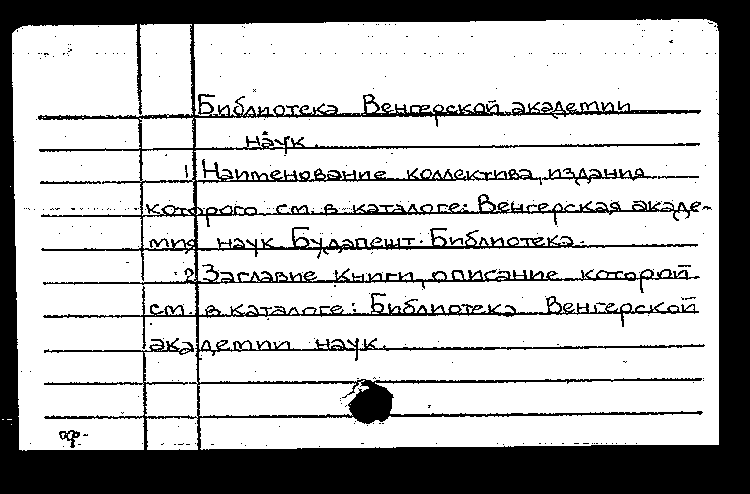 Библиотека Венгерской академии
наук.
1. Наименование коллектива, издания
которого см. в каталоге: Венгерская акаде-
мия наук. Будапешт. Библиотека.
2. Заглавие книги, описание которой
см. в каталоге: Библиотека Венгерской
академии наук.